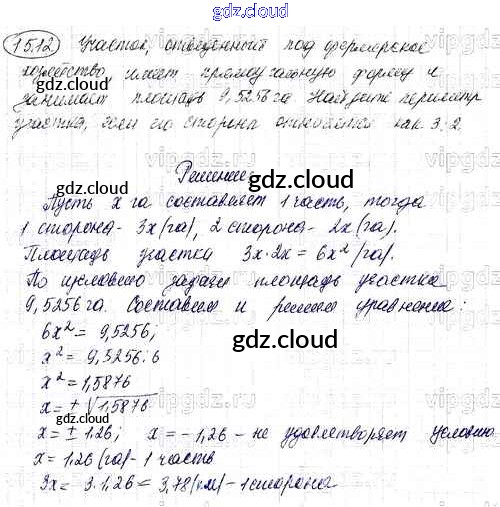 gdz.cloud
15.12 Участок, отведенный под фермерское
хозяйство имеет прямоугольную форму и
занимает площадь 9,5256 га Найдите периметр
участка, если его стороны относятся как 3:2
Решение
gdz.cloud
gdz.cloud
Пусть x га составляет 1 часть, тогда
1 сторона - 3x (га), 2 сторона - 2x (га).
Площадь участка 3x·2x = 6x² (га).
По условию задачи площадь участка
9,5256 га. Составим и решим уравнение:
6x² = 9,5256;
x² = 9,5256:6
gdz.cloud
x² = 1,5876
x = ± √1,5876
x = ± 1,26; x = -1,26 - не удовлетворяет условию
x = 1,26 (га) - 1 часть
gdz.cloud
gdz.cloud
3x = 3·1,26 = 3,78 (км) - 1 сторона
vipgdz.ru